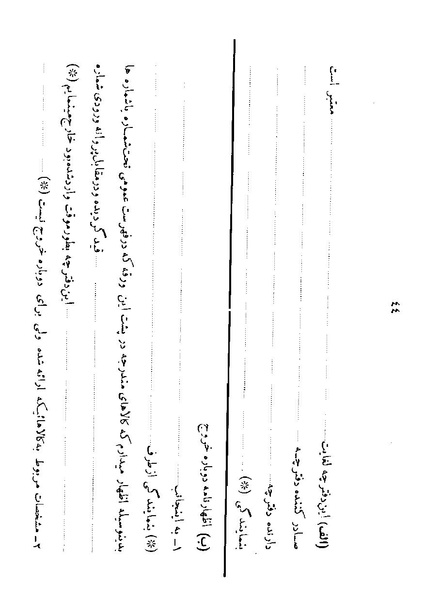 ٤٤
(الف) این دفترچه لغایت معتبر است
صادر کننده دفترچه
دارنده دفترچه
بنمایندگی (*)
(ب) اظهارنامه دوباره خروج
۱ـ به اینجانب
(*) بنمایندگی ازطرف
بدینوسیله اظهار میدارم که کالاهای مندرجه در پشت این ورقه که درفهرست عمومی تحت‌شماره یاشماره ها
قید گردیده ودرمقابل پروانه ورودی شماره
این دفترچه بطورموقت واردشده‌بود خارج‌مینمایم (*)
۲ـ مشخصات مربوط به‌کالاهائیکه ارائه شده ولی برای دوباره خروج نیست (*)